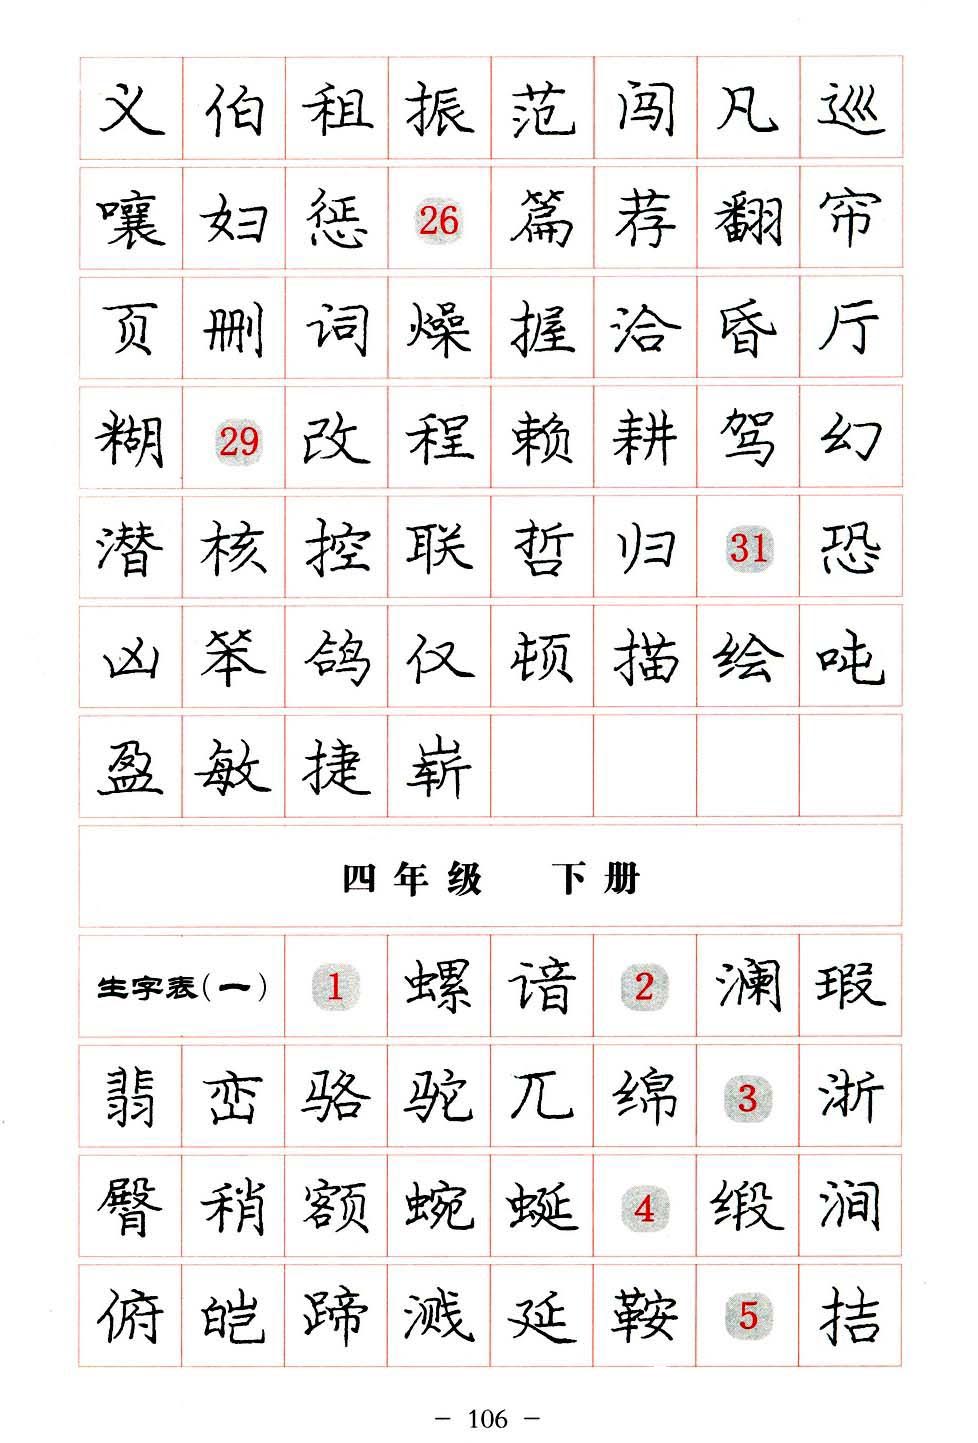 义 伯 租 振 范 闯 凡 巡
嚷 妇 惩 26 篇 荐 翻 帘
页 删 词 燥 握 洽 昏 厅
糊 29 改 程 赖 耕 驾 幻
潜 核 控 联 哲 归 31 恐
凶 笨 鸽 仅 顿 描 绘 吨
盈 敏 捷 崭
四年级 下册
生字表(一) 1 螺 谙 2 澜 瑕
翡 峦 骆 驼 兀 绵 3 浙
臀 稍 额 蜿 蜒 4 缎 涧
俯 皑 蹄 溅 延 鞍 5 拮
– 106 –